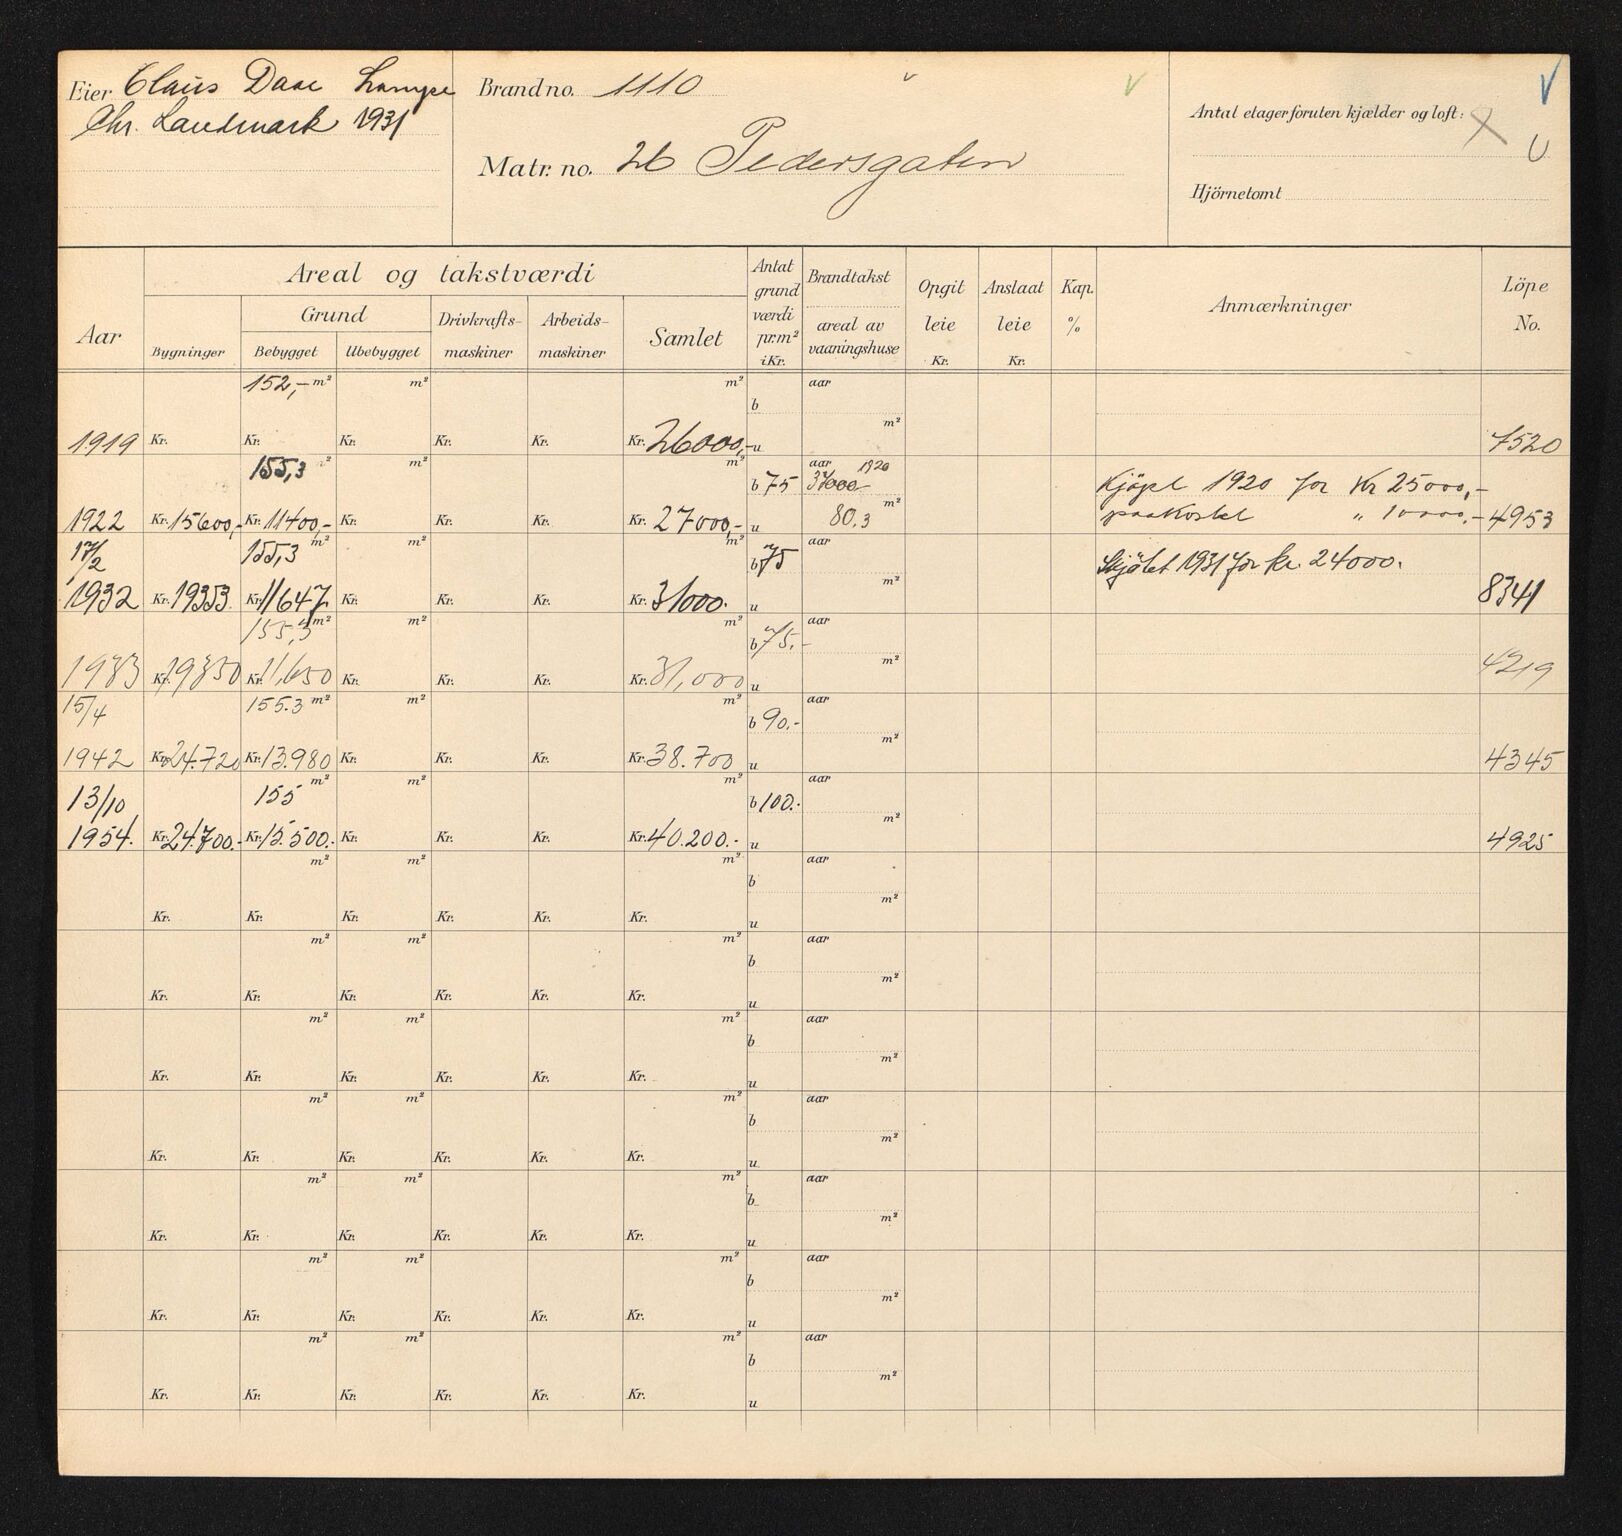 Eier Claus Daae Lampe
Chr. Landmark 1931
Brand no. 1110
Matr. no. 26 Pedersgaten
Antal etager foruten kjælder og loft:
Hjörnetomt
Aar
Areal og takstværdi
Bygninger
Grund
Bebygget Ubebygget
Drivkrafts-
maskiner
Arbeids-
maskiner
Samlet
Antat
grund
værdi
pr. m²
i Kr.
Brandtakst
areal av
vaaningshuse
Opgit
leie
Kr.
Anslaat
leie
Kr.
Kap.
%
Anmærkninger
Löpe
No.
152,- m² m² m² aar
b
m²
1919 Kr. Kr. Kr. Kr. Kr. Kr. 26000,- u 7520
155,3 m² m² m² aar 1920
b 75 37000- Kjöpt 1920 for Kr 25000,-
m²
1922 Kr. 15600,- Kr. 11400,- Kr. Kr. Kr. Kr. 27000,- u 80,3 paakostet " 10000,- 4953
17/2 155,3 m² m² m² aar
b 75 Skjötet 1931 for kr. 24000.
m²
1932 Kr. 19353. Kr. 11647. Kr. Kr. Kr. Kr. 31000. u 8341
155,3 m² m² m² aar
b 75,-
m²
1933 Kr. 19350 Kr. 11,650 Kr. Kr. Kr. Kr. 31,000 u 4219
15/4 155.3 m² m² m² aar
b 90.-
m²
1942 Kr. 24.720 Kr. 13.980 Kr. Kr. Kr. Kr. 38.700 u 4345
13/10 155 m² m² m² aar
b 100.-
m²
1954. Kr. 24.700.- Kr. 15.500.- Kr. Kr. Kr. Kr. 40.200.- u 4925
m² m² m² aar
b
m²
Kr. Kr. Kr. Kr. Kr. Kr. u
m² m² m² aar
b
m²
Kr. Kr. Kr. Kr. Kr. Kr. u
m² m² m² aar
b
m²
Kr. Kr. Kr. Kr. Kr. Kr. u
m² m² m² aar
b
m²
Kr. Kr. Kr. Kr. Kr. Kr. u
m² m² m² aar
b
m²
Kr. Kr. Kr. Kr. Kr. Kr. u
m² m² m² aar
b
m²
Kr. Kr. Kr. Kr. Kr. Kr. u
m² m² m² aar
b
m²
Kr. Kr. Kr. Kr. Kr. Kr. u